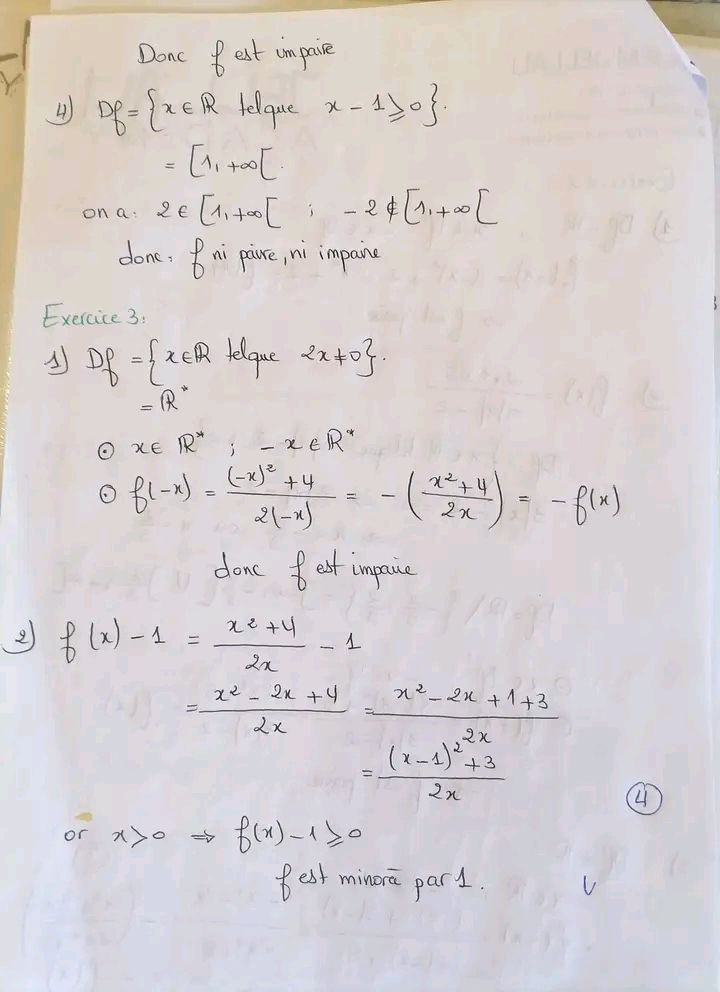 Donc f est impaire
4) Df = {x ∈ ℝ telque x - 1 ⩾ 0}.
= [1, +∞[.
on a: 2 ∈ [1, +∞[ ; -2 ∉ [1, +∞[
donc: f ni paire, ni impaire
Exercice 3:
1) Df = {x ∈ ℝ telque 2x ≠ 0}.
= ℝ*
⊙ x ∈ ℝ* ; -x ∈ ℝ*
⊙ f(-x) = ((-x)² + 4)/(2(-x)) = - ((x² + 4)/(2x)) = - f(x)
donc f est impaire
2) f(x) - 1 = (x² + 4)/(2x) - 1
= (x² - 2x + 4)/(2x) = (x² - 2x + 1 + 3)/(2x)
= ((x - 1)² + 3)/(2x)
4
or x > 0 ⇒ f(x) - 1 ⩾ 0
f est minorā par 1.